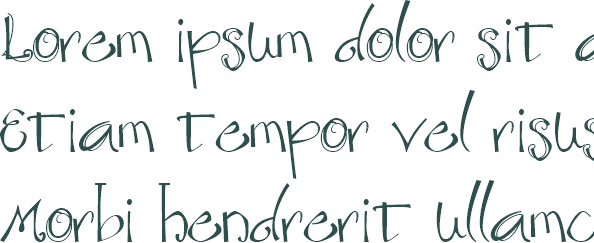 Lorem ipsum dolor sit a
Etiam tempor vel risus
Morbi hendrerit ullamc